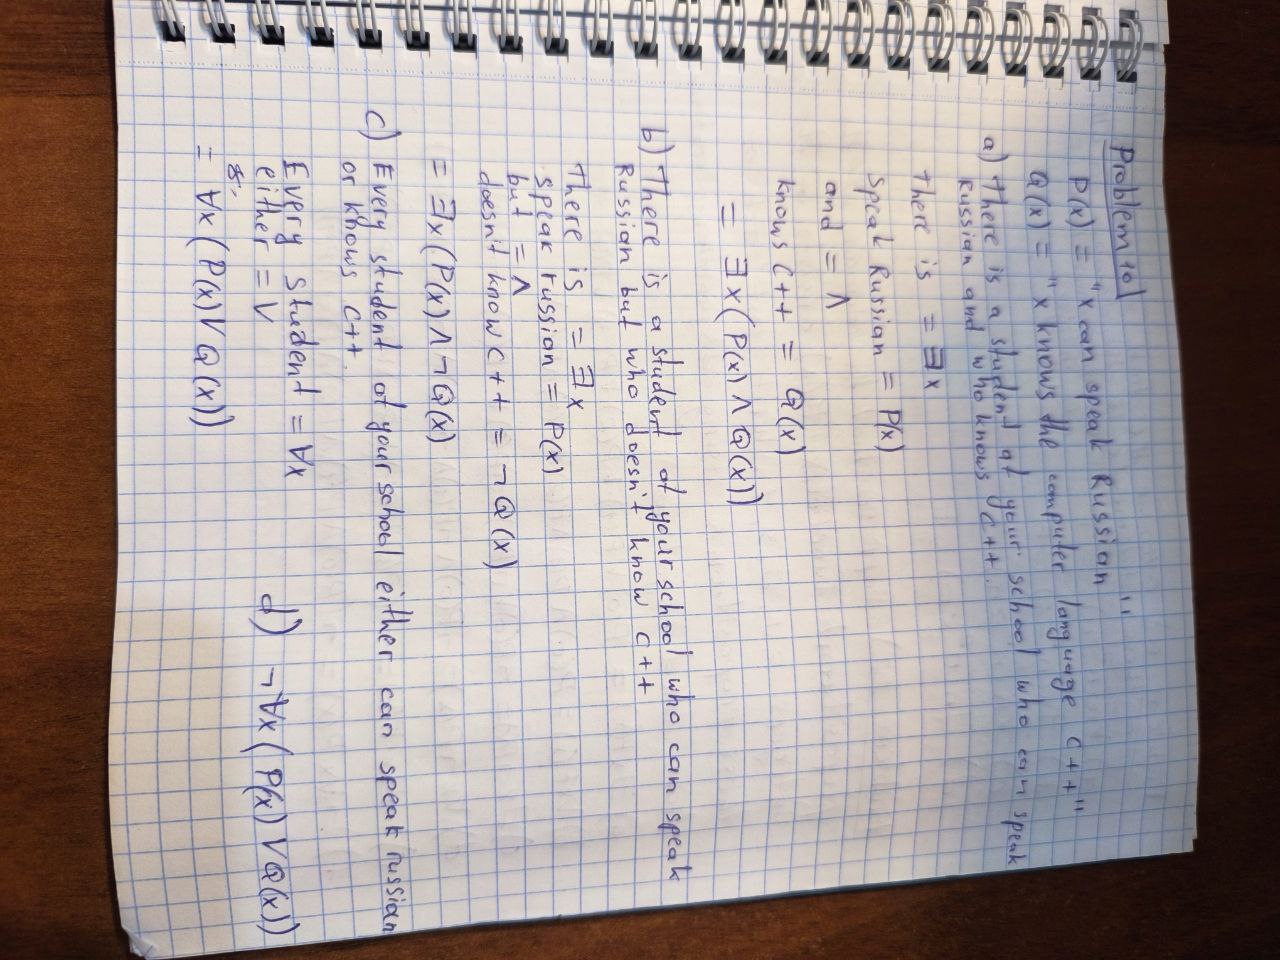 Problem 10
P(x) = "x can speak Russian"
Q(x) = "x knows the computer language C++"
a) There is a student at your school who can speak
Russian and who knows C++.
There is = ∃x
Speak Russian = P(x)
and = ∧
knows C++ = Q(x)
= ∃x(P(x) ∧ Q(x))
b) There is a student at your school who can speak
Russian but who doesn't know C++
There is = ∃x
speak russian = P(x)
but = ∧
doesn't know C++ = ¬Q(x)
= ∃x(P(x) ∧ ¬Q(x)
c) Every student at your school either can speak russian
or knows C++.
Every student = ∀x
either = ∨
= ∀x(P(x) ∨ Q(x))
d) ¬∀x(P(x) ∨ Q(x))